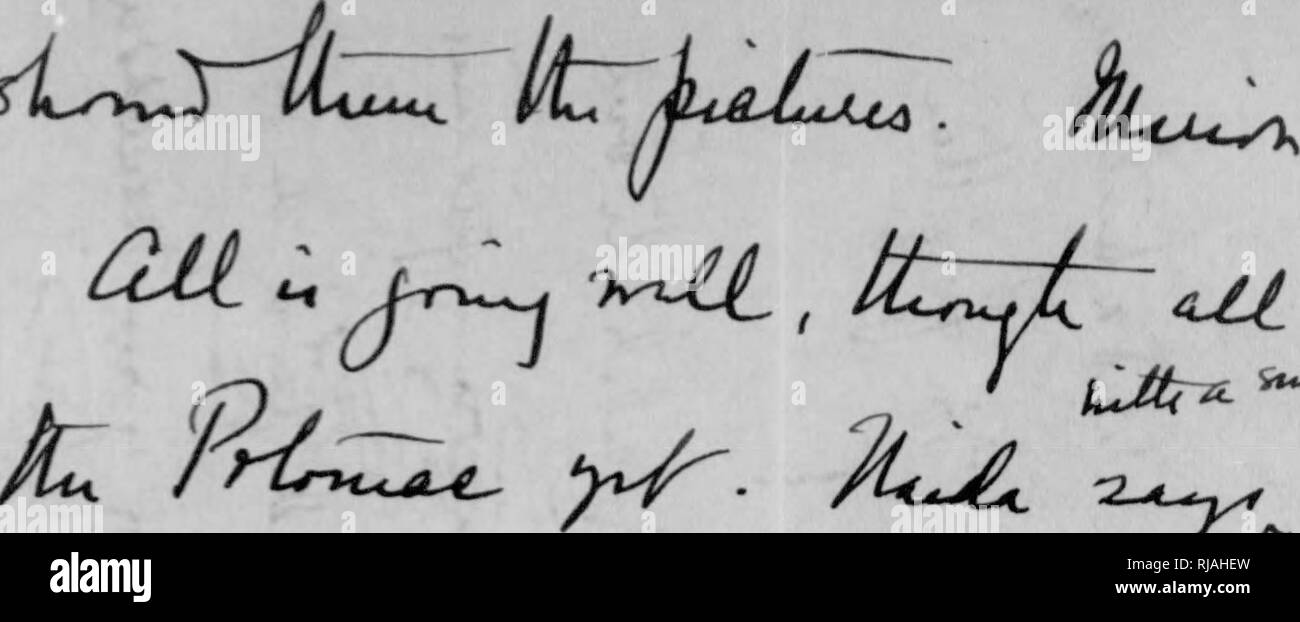 showed them the pictures. Marion
All is going well, though all
with a
the Potomac yet. Naida says
alamy
Image ID: RJAHEW
www.alamy.com